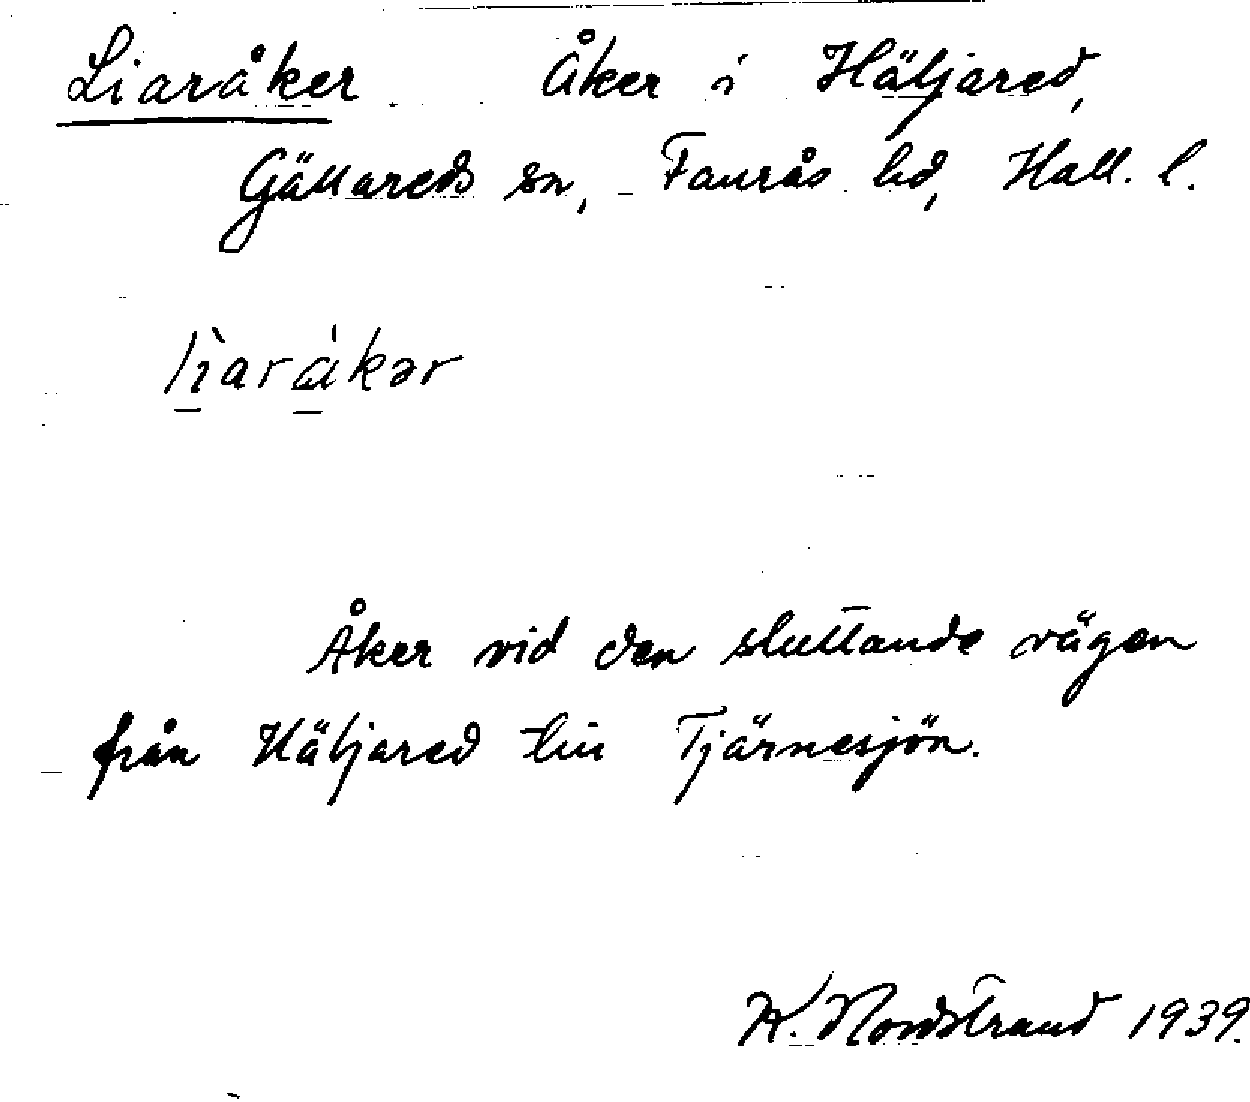 Liaråker Åker i Häljared,
Gällareds sn, Faurås hd, Hall. l.
Åker vid den sluttande vägen
från Häljared till Tjärnesjön.
K. Nordstrand 1939.